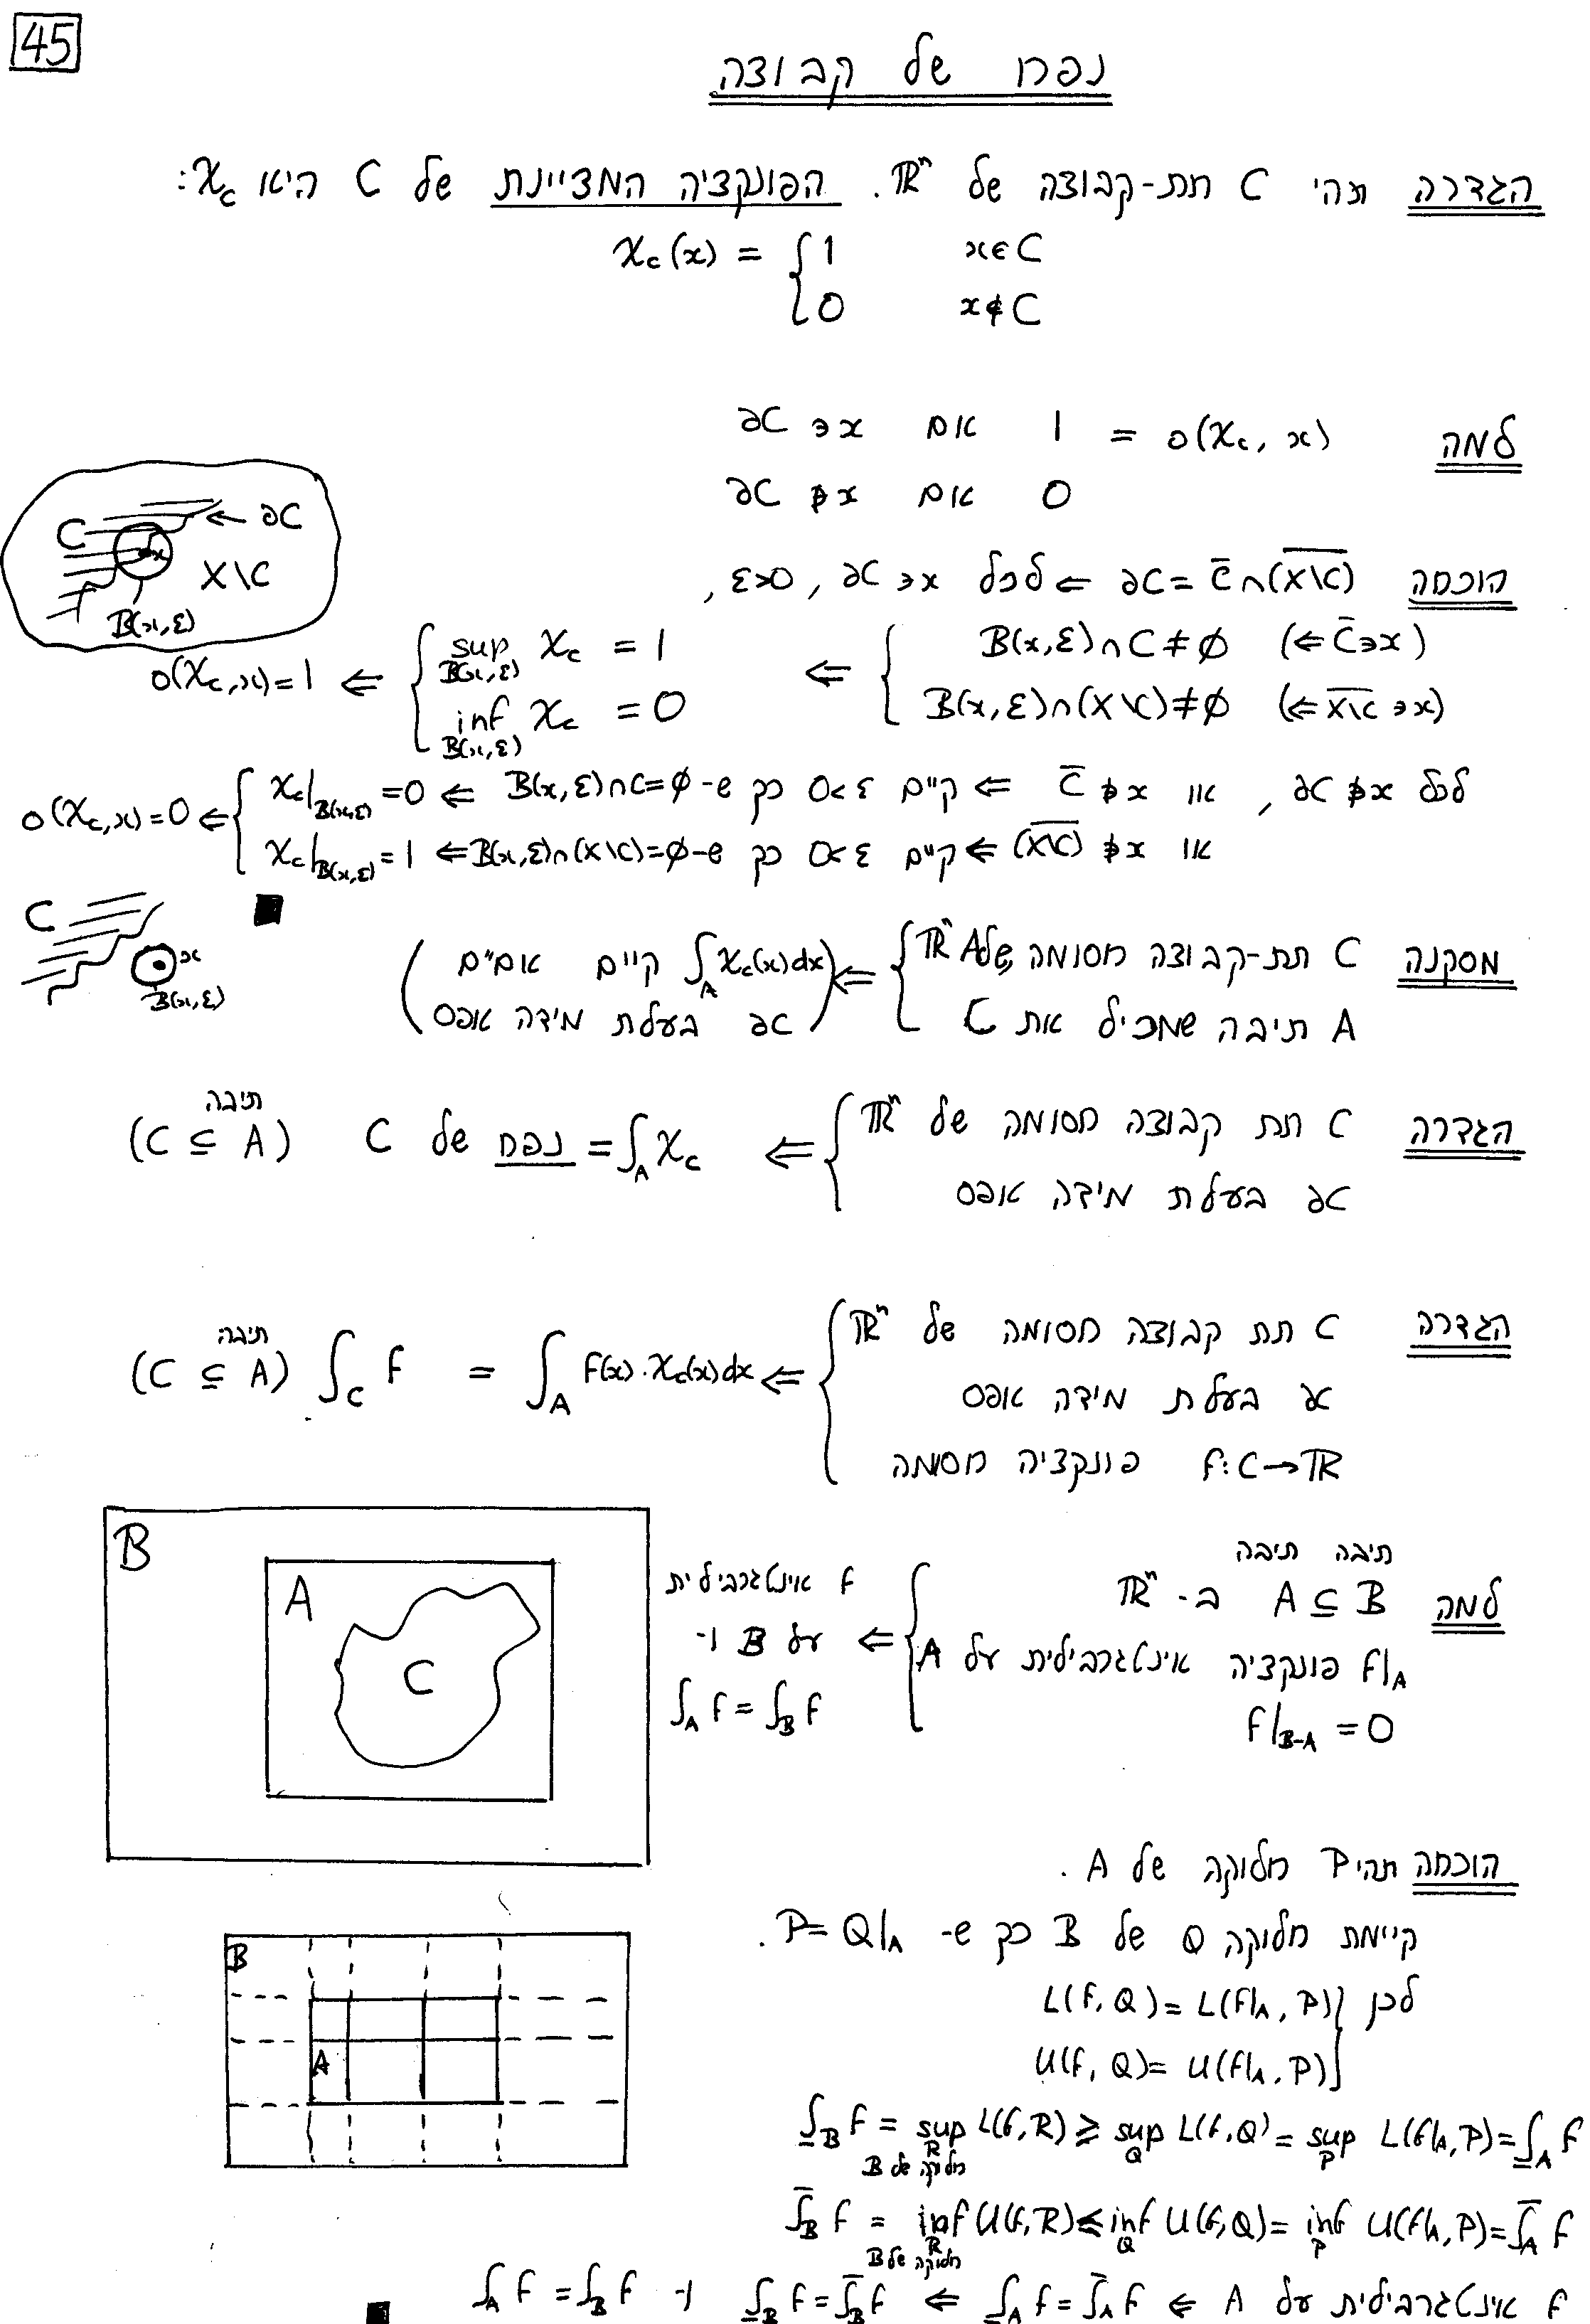 45
נפח של קבוצה
הגדרה תהי C תת-קבוצה של ℝⁿ. הפונקציה המציינת של C היא χ_C:
χ_C(x) = { 1 x∈C
0 x∉C
למה o(χ_C, x) = 1 אם x∈∂C
0 אם x∉∂C
∂C
C x
X\C
B(x,ε)
הוכחה ∂C = C̄∩(X\C)‾ ⇐ לכל x∈∂C, ε>0,
(⇐ x∈C̄) B(x,ε)∩C≠∅
(⇐ x∈(X\C)‾) B(x,ε)∩(X\C)≠∅
⇐ { sup_{B(x,ε)} χ_C = 1
inf_{B(x,ε)} χ_C = 0
⇐ o(χ_C,x)=1
לכל x∉∂C, או x∉C̄ ⇐ קיים ε>0 כך ש-B(x,ε)∩C=∅ ⇐ χ_C|_{B(x,ε)}=0
או x∉(X\C)‾ ⇐ קיים ε>0 כך ש-B(x,ε)∩(X\C)=∅ ⇐ χ_C|_{B(x,ε)}=1
⇐ o(χ_C,x)=0
C
x
B(x,ε)
מסקנה C תת-קבוצה חסומה של ℝⁿ
A תיבה שמכיל את C
⇐ (∫_A χ_C(x)dx קיים אם"ם
∂C בעלת מידה אפס)
הגדרה C תת קבוצה חסומה של ℝⁿ
∂C בעלת מידה אפס
⇐ ∫_A χ_C = נפח של C (C ⊆ A)
תיבה
הגדרה C תת קבוצה חסומה של ℝⁿ
∂C בעלת מידה אפס
f:C→ℝ פונקציה חסומה
⇐ ∫_A f(x)·χ_C(x)dx = ∫_C f (C ⊆ A)
תיבה
B
A
C
תיבה תיבה
למה A ⊆ B ב-ℝⁿ
f|_A פונקציה אינטגרבילית על A
f|_{B-A} = 0
⇐ f אינטגרבילית
על B ו-
∫_A f = ∫_B f
הוכחה תהי P חלוקה של A.
קיימת חלוקה Q של B כך ש- P=Q|_A.
לכן L(f,Q)=L(f|_A,P)
U(f,Q)=U(f|_A,P)
B
A
∫̲_B f = sup_R L(f,R) ≥ sup_Q L(f,Q) = sup_P L(f|_A,P) = ∫̲_A f
חלוקה של B
∫̄_B f = inf_R U(f,R) ≤ inf_Q U(f,Q) = inf_P U(f|_A,P) = ∫̄_A f
חלוקה של B
f אינטגרבילית על A ⇐ ∫̲_A f=∫̄_A f ⇐ ∫̲_B f=∫̄_B f ו- ∫_A f = ∫_B f